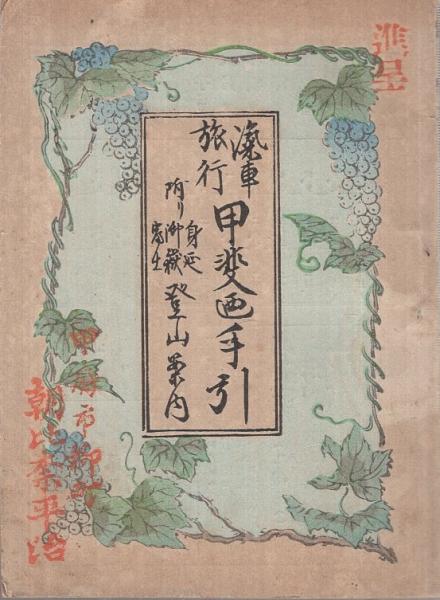 進呈
滊車
旅行
甲斐廼手引
附り
身延
御嶽
富士
登山案内
甲府市柳町
朝比奈平治